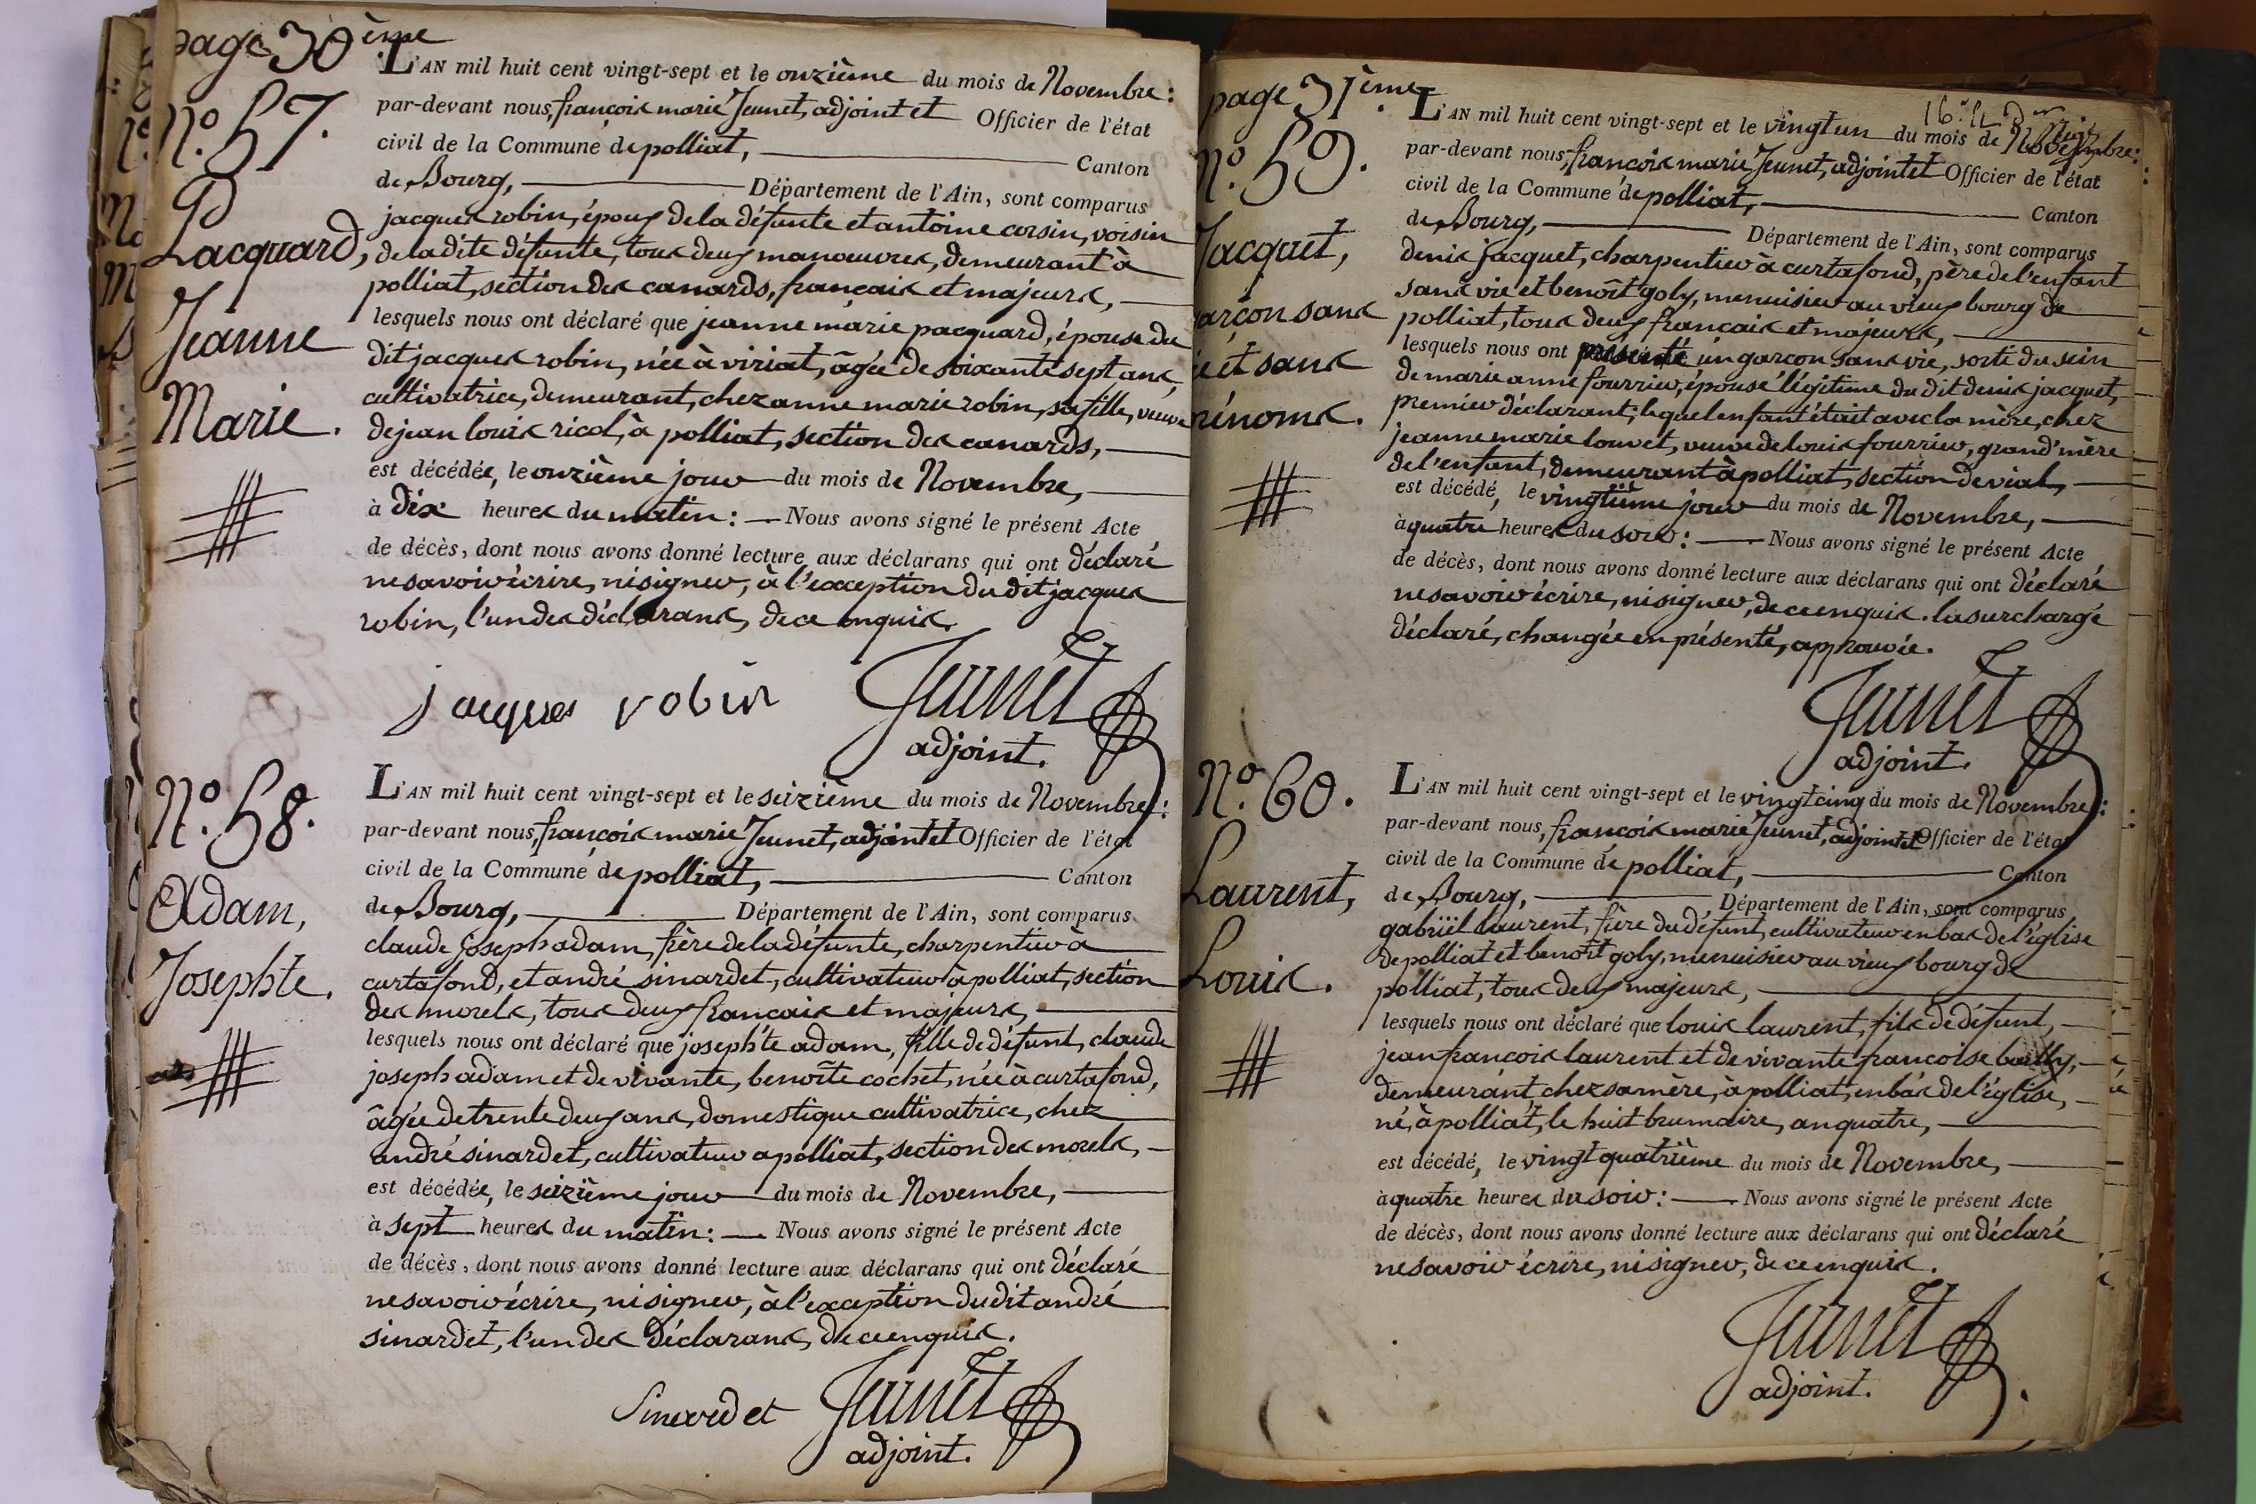 page 30ème
L'AN mil huit cent vingt-sept et le onzième du mois de Novembre:
N.o 57.
par-devant nous, françois marie Jeunet, adjoint et Officier de l'état
civil de la Commune de polliat, Canton
de Bourg, Département de l'Ain, sont comparus
Pacquard,
Jeanne
Marie.
jacques robin, époux de la défunte et antoine corsin, voisin
de la dite défunte, tous deux manoeuvres, demeurant à
polliat, section des canards, français et majeurs,
lesquels nous ont déclaré que jeanne marie pacquard, épouse du
dit jacques robin, née à viriat, âgée de soixante sept ans,
cultivatrice, demeurant, chez anne marie robin, sa fille, veuve
de jean louis ricol, à polliat, section des canards,
est décédée, le onzième jour du mois de Novembre,
à dix heures du matin: Nous avons signé le présent Acte
de décès, dont nous avons donné lecture aux déclarans qui ont déclaré
ne savoir écrire, ni signer, à l'exception du dit jacques
robin, l'un des déclarans, de ce enquis.
jacques robin Jeunet
adjoint.
N.o 58.
Adam,
Josephte.
L'AN mil huit cent vingt-sept et le seizième du mois de Novembre:
par-devant nous, françois marie Jeunet, adjoint et Officier de l'état
civil de la Commune de polliat, Canton
de Bourg, Département de l'Ain, sont comparus
claude joseph adam, frère de la défunte, charpentier à
curtafond, et andré sinardet, cultivateur à polliat, section
des morels, tous deux français et majeurs,
lesquels nous ont déclaré que josephte adam, fille de défunt, claude
joseph adam et de vivante, benoîte cochet, née à curtafond,
âgée de trente deux ans, domestique cultivatrice, chez
andré sinardet, cultivateur a polliat, section des morels,
est décédée, le seizième jour du mois de Novembre,
à sept heures du matin: Nous avons signé le présent Acte
de décès, dont nous avons donné lecture aux déclarans qui ont déclaré
ne savoir écrire, ni signer, à l'exception du dit andré
sinardet, l'un des déclarans, de ce enquis.
Sinardet Jeunet
adjoint.
page 31ème
N.o 59.
Jacquet,
garçon sans
vie et sans
prénoms.
L'AN mil huit cent vingt-sept et le vingt un du mois de Novembre:
par-devant nous, françois marie Jeunet, adjoint et Officier de l'état
civil de la Commune de polliat, Canton
de Bourg, Département de l'Ain, sont comparus
denis jacquet, charpentier à curtafond, père de l'enfant
sans vie et benoît goly, menuisier au vieux bourg de
polliat, tous deux français et majeurs,
lesquels nous ont présenté un garçon sans vie, sorti du sein
de marie anne fourrier, épouse légitime du dit denis jacquet,
premier déclarant; lequel enfant était avec la mère, chez
jeanne marie louvet, veuve de louis fourrier, grand'mère
de l'enfant, demeurant à polliat, section de vial,
est décédé, le vingtième jour du mois de Novembre,
à quatre heures du soir: Nous avons signé le présent Acte
de décès, dont nous avons donné lecture aux déclarans qui ont déclaré
ne savoir écrire, ni signer, de ce enquis. la surchargé
déclaré, changée en présenté, approuvée.
Jeunet
adjoint.
N.o 60.
Laurent,
Louis.
L'AN mil huit cent vingt-sept et le vingt cinq du mois de Novembre:
par-devant nous, françois marie Jeunet, adjoint et Officier de l'état
civil de la Commune de polliat, Canton
de Bourg, Département de l'Ain, sont comparus
gabriël laurent, frère du défunt, cultivateur en bas de l'église
de polliat et benoît goly, menuisier au vieux bourg de
polliat, tous deux majeurs,
lesquels nous ont déclaré que louis laurent, fils de défunt,
jean françois laurent et de vivante françoise bailly,
demeurant chez sa mère, à polliat, en bas de l'église,
né, à polliat, le huit brumaire, an quatre,
est décédé, le vingt quatrième du mois de Novembre,
à quatre heures du soir: Nous avons signé le présent Acte
de décès, dont nous avons donné lecture aux déclarans qui ont déclaré
ne savoir écrire, ni signer, de ce enquis.
Jeunet
adjoint.